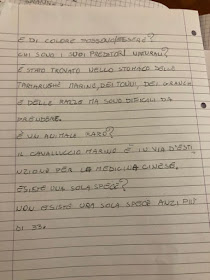 E DI COLORE ROSSONO/BESERE?
CHI SONO I SUOI PREDATORI NATURALI?
È STATO TROVATO NELLO STOMACO DELLE
TARTARUGHE MARINE, DEI TONNI, DEI GRANCHI
E DELLE RAZZE MA SONO DIFFICILI DA
PRENDERE.
È UN ANIMALE RARO?
IL CAVALLUCCIO MARINO È IN VIA D'ESTI
NZIONE PER LA MEDICINA CINESE.
ESISTE UNA SOLA SPECE?
NON ESISTE UNA SOLA SPECE ANZI PIÙ
DI 33.